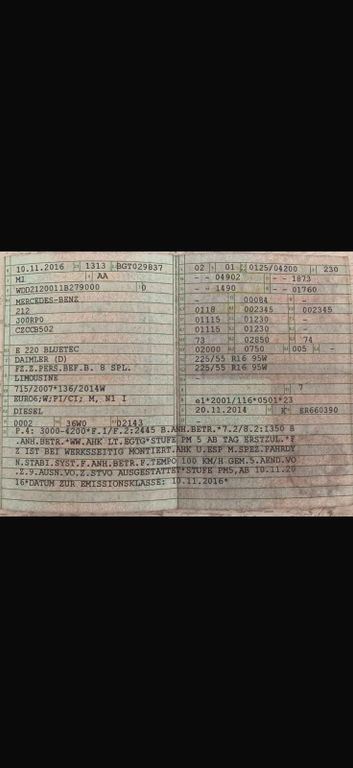 10.11.2016 1313 BGT029837
M1 AA
WDD2120011B279000 0
MERCEDES-BENZ
212
300RP0
CZCCB502
E 220 BLUETEC
DAIMLER (D)
FZ.Z.PERS.BEF.B. 8 SPL.
LIMOUSINE
715/2007*136/2014W
EURO6;W;PI/CI; M, N1 I
DIESEL
0002 36W0 02143
02 01 0125/04200 230
- - 04902 - - 1873
- - 1490 - - 01760
- 00084 -
0118 002345 002345
01115 01230 -
01115 01230 -
73 02850 74
02000 0750 005 -
225/55 R16 95W
225/55 R16 95W
-
- 7
e1*2001/116*0501*23
20.11.2014 K ER660390
-
P.4: 3000-4200*F.1/F.2:2445 B.ANH.BETR.*7.2/8.2:1350 B
.ANH.BETR.*WW.AHK LT.EGTG*STUFE PM 5 AB TAG ERSTZUL.*F
Z IST BEI WERKSSEITIG MONTIERT.AHK U.ESP M.SPEZ.FAHRDY
N.STABI.SYST.F.ANH.BETR.F.TEMPO 100 KM/H GEM.5.AEND.VO
.Z.9.AUSN.VO.Z.STVO AUSGESTATTET*STUFE PM5,AB 10.11.20
16*DATUM ZUR EMISSIONSKLASSE: 10.11.2016*